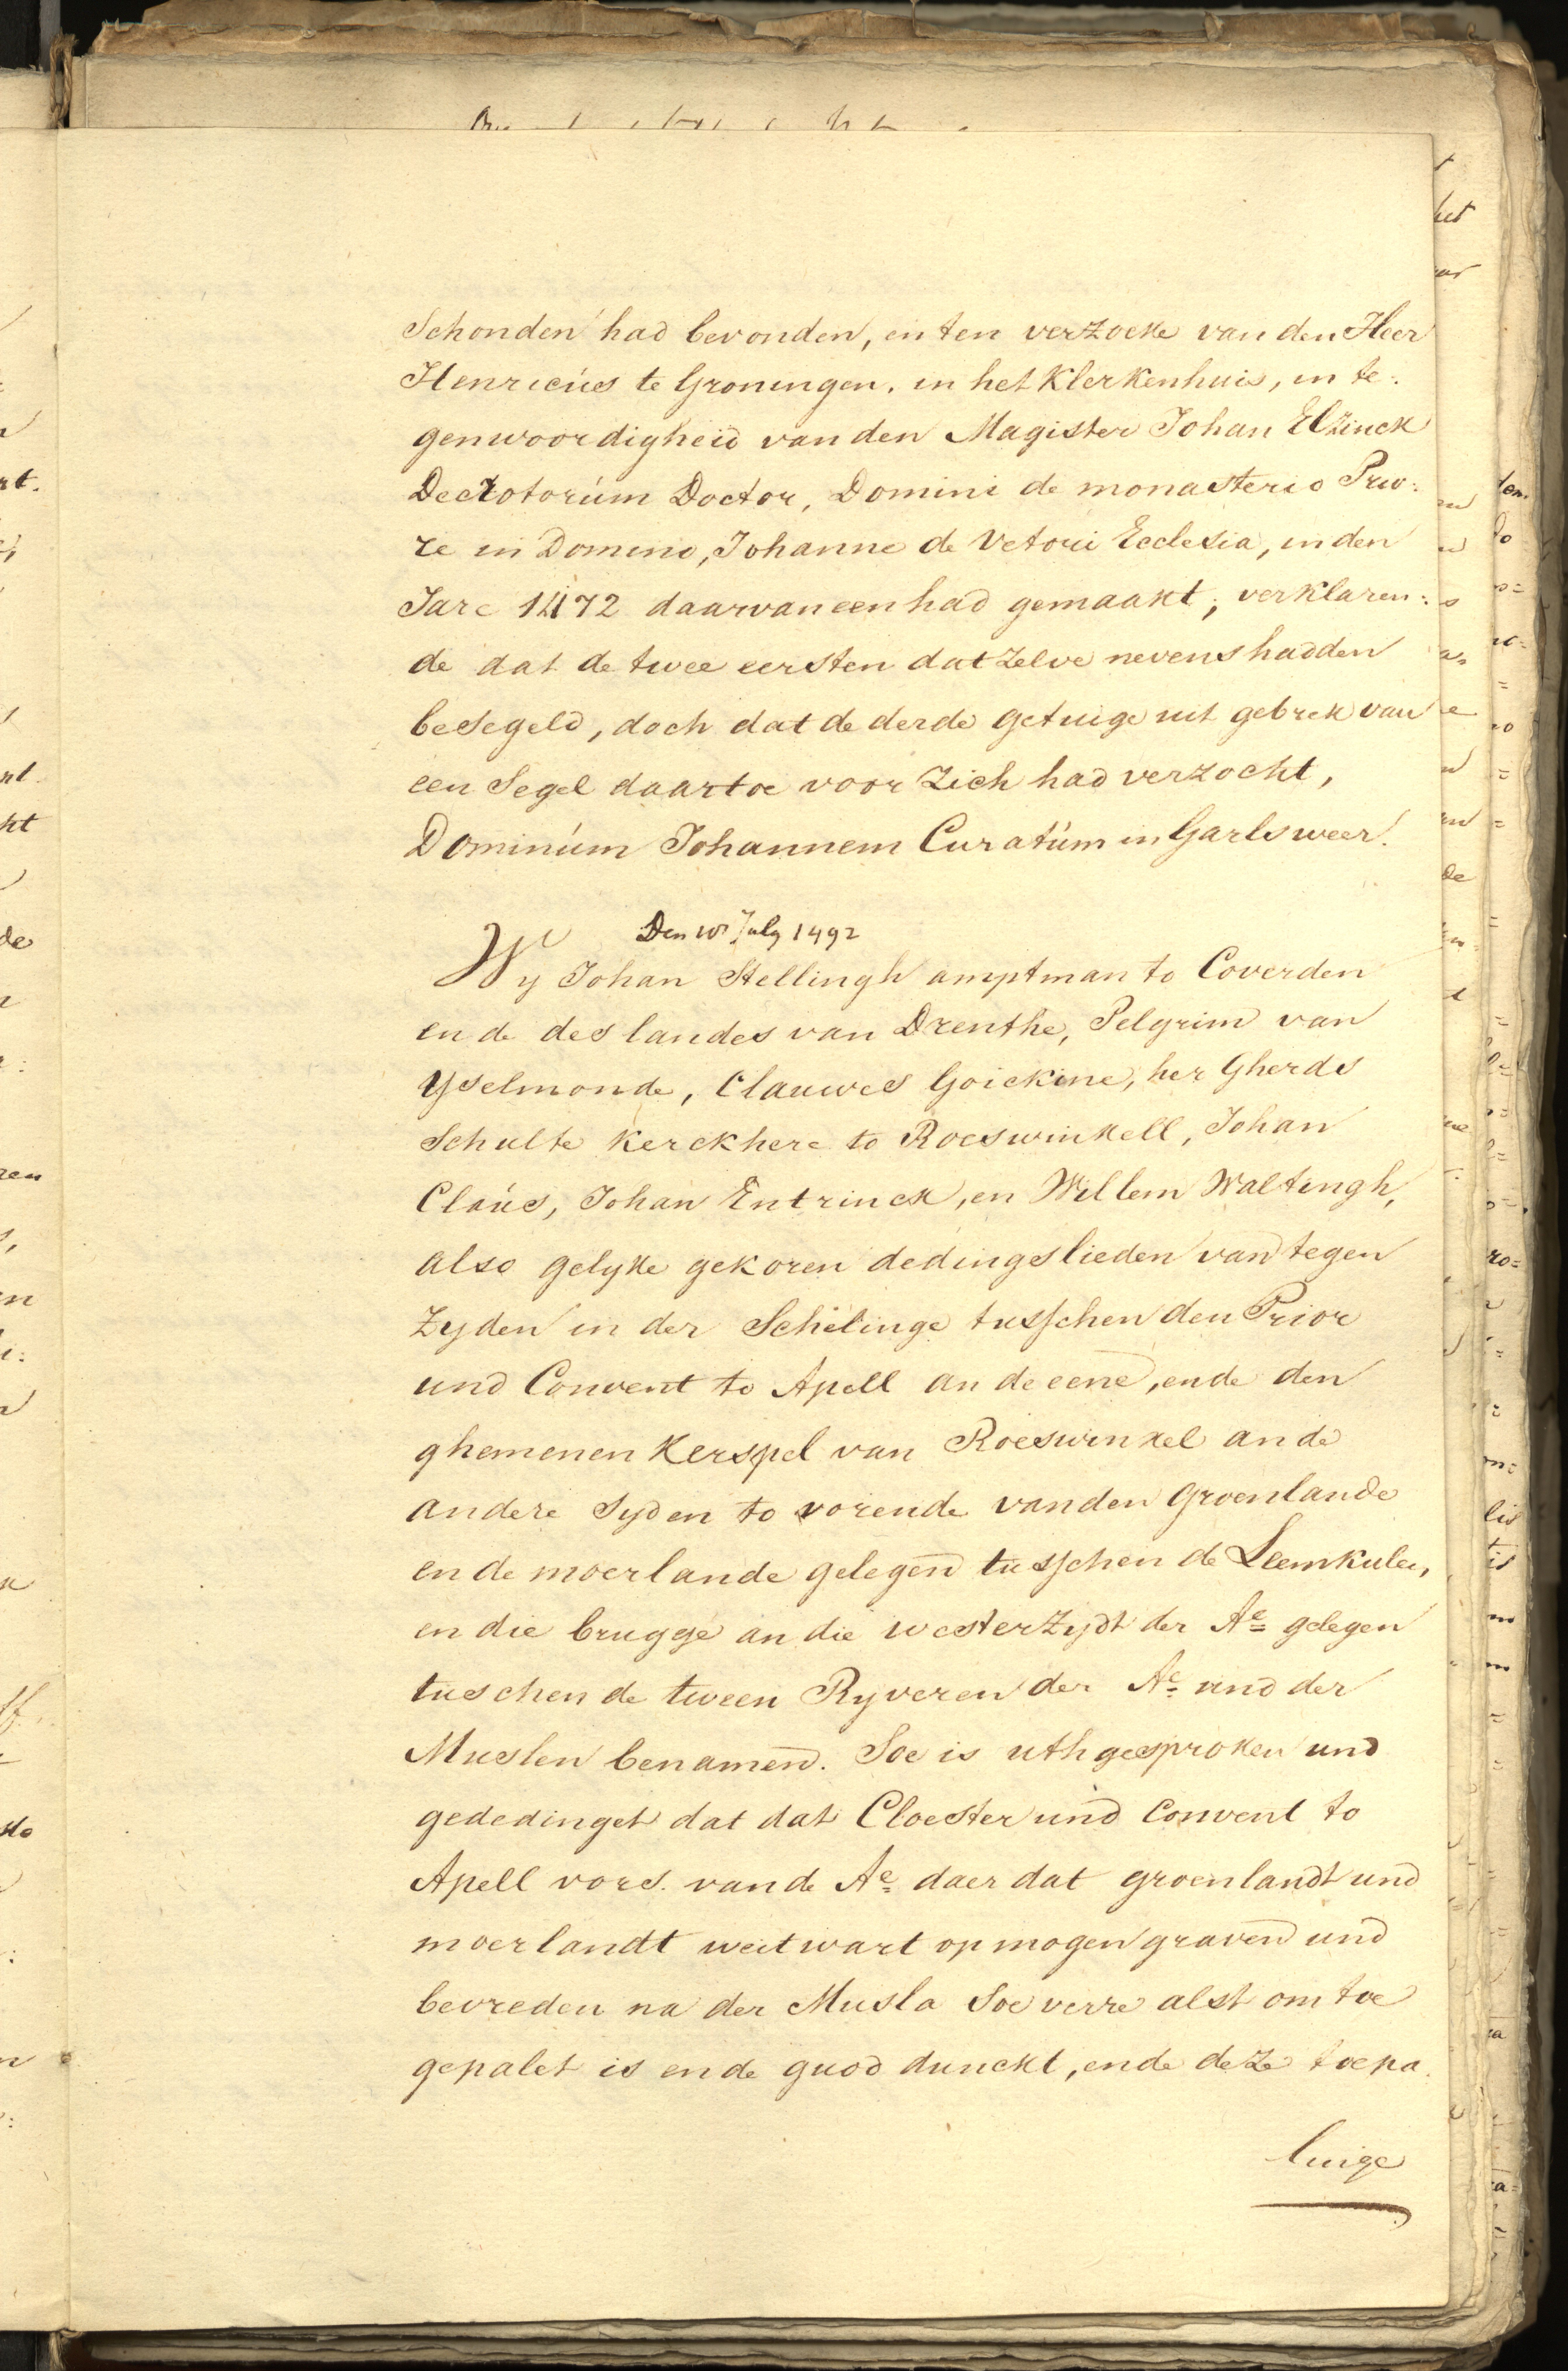 Schonden had bevonden, en ten verzoeke van den Heer
Henricús te Groningen. in het Klerkenhuis, in te:
genwoordigheid van den Magister Johan Elzinck
Decrotorúm Doctor, Domini de monasterio Prio:
re in Domino, Johanne de Vetori Ecclesia, in den
Jare 1472 daarvan een had gemaakt; verklaren:
de dat de twee eersten dat zelve nevens hadden
besegeld, doch dat de derde getuige uit gebrek van
een Segel daartoe voor Zich had verzocht,
Dominúm Johannem Curatúm in Garlsweer.
Den 10 July 1492
Wy Johan Stellingh amptman to Coverden
ende des landes van Drenthe, Pelgrim van
Yselmonde, Clauwes Goickine, her Gherds
Schulte Kerckhere to Roeswinkell, Johan
Claús, Johan Entrinck, en Willem Waltingh,
also gelyke gekoren dedingslieden van tegen
Zyden in der Schelinge tusschen den Prior
und Convent to Apell an de eene, ende den
ghemenen Kerspel van Roeswinkel an de
andere Syden to vorende van den Groenlande
ende moerlande gelegen tusschen de Leemkulen,
en die brugge an die westerzydt der Ae gelegen
tuschen de tween Ryveren der Ae und der
Muslen benamen. Soe is uthgesproken und
gededinget dat dat Cloester und Convent to
Apell vors. van de Ae daer dat groenlandt und
moerlandt westwart op mogen graven und
bevreden na der Musla Soe verre alst om toe
gepalet is ende guod dunckt, ende deze toepa.
luige